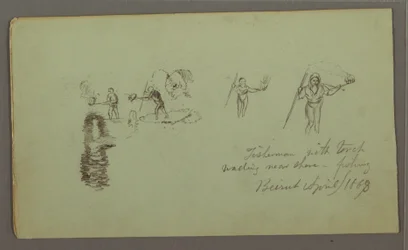 Fisherman with torch
wading near shore fishing
Beirut April 1863